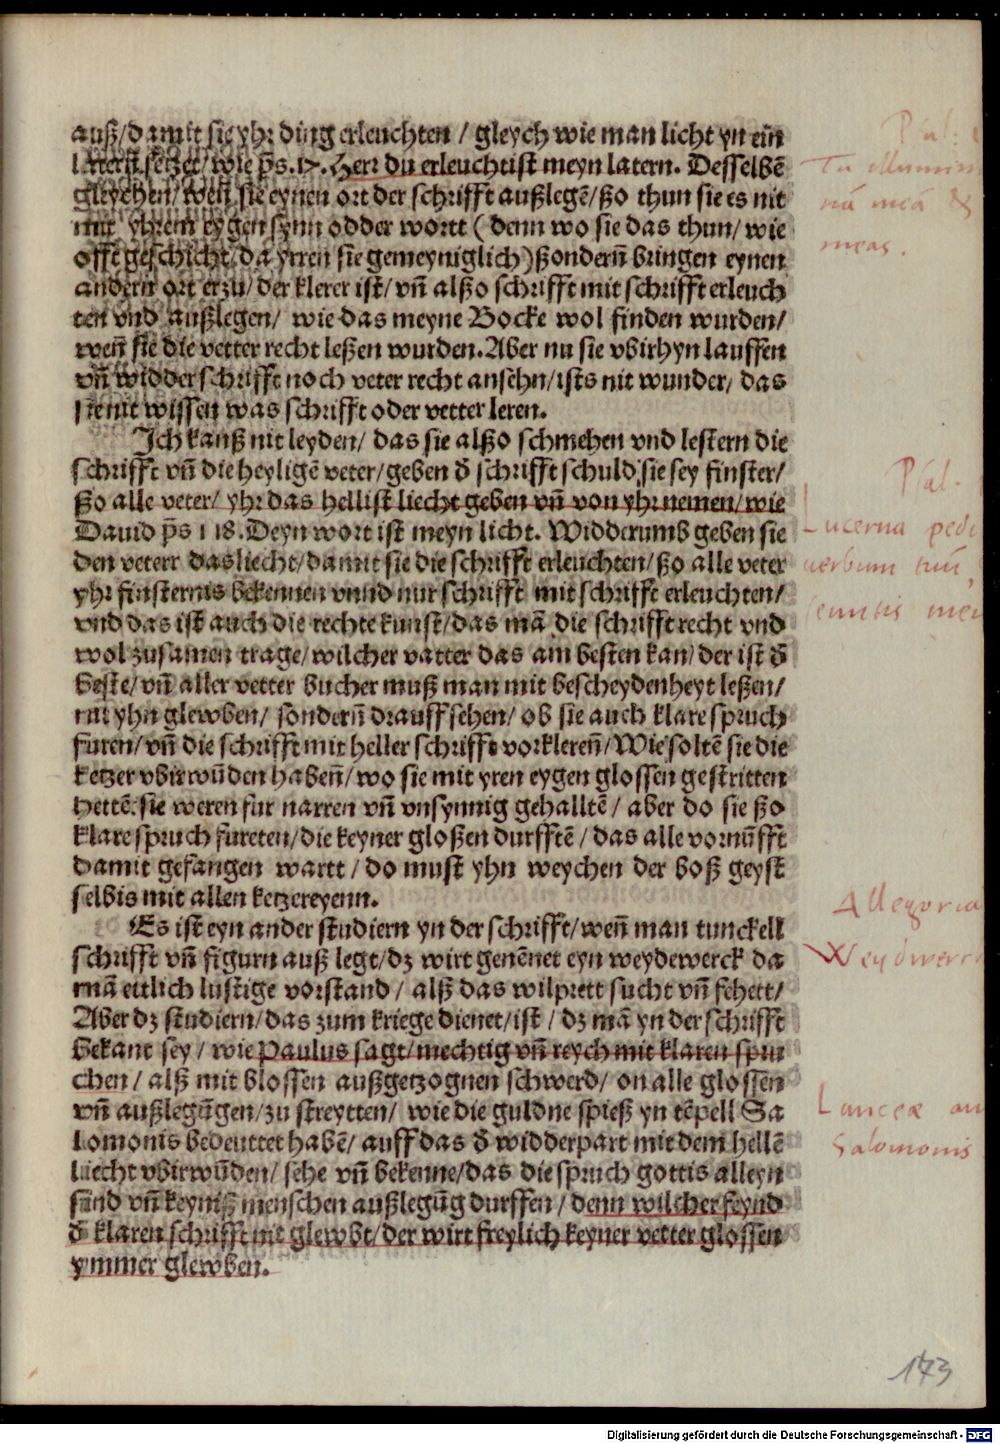 auß/damit sie yhr ding erleuchten / gleych wie man licht yn ein
latern setzet/ wie ps. 17. Herr du erleuchtist meyn latern. Desselbē
gleychen/ weñ sie eynen ort der schrifft außlegē/ ßo thun sie es nit
mit yhrem eygen synn odder wortt ( denn wo sie das thun/ wie
offt geschicht/ da yrren sie gemeyniglich) ßonderñ bringen eynen
andern ort erzu/ der klerer ist/ vñ alßo schrifft mit schrifft erleuch
ten vnd außlegen/ wie das meyne Bocke wol finden wurden/
weñ sie die vetter recht leßen wurden. Aber nu sie vbirhyn lauffen
vñ widder schrifft noch veter recht ansehn/ ists nit wunder/ das
sie nit wissen was schrifft oder vetter leren.
Ich kanß nit leyden/ das sie alßo schmehen vnd lestern die
schrifft vñ die heyligē veter/ geben đ schrifft schuld/ sie sey finster/
ßo alle veter/ yhr das hellist liecht geben vñ von yhr nemen/ wie
Dauid ps 118. Deyn wort ist meyn licht. Widderumb geben sie
den veterr das liecht/ damit sie die schrifft erleuchten/ ßo alle veter
yhr finsternis bekennen vnnd nur schrifft mit schrifft erleuchten/
vnd das ist auch die rechte kunst/ das mā die schrifft recht vnd
wol zusamen trage/ wilcher vatter das am besten kan/ der ist đ
beste/ vñ aller vetter bucher muß man mit bescheydenheyt leßen/
nit yhn glewben/ sonderñ drauff sehen/ ob sie auch klare spruch
furen/ vñ die schrifft mit heller schrifft vorklereñ/ Wie soltē sie die
ketzer vbirwūden habeñ/ wo sie mit yren eygen glossen gestritten
hettē: sie weren fur narren vñ vnsynnig gehalltē / aber do sie ßo
klare spruch fureten/ die keyner gloßen durfftē / das alle vornūfft
damit gefangen wartt / do must yhn weychen der boß geyst
selbis mit allen ketzereyenn.
Es ist eyn ander studiern yn der schrifft/ weñ man tunckell
schrifft vñ figurn auß legt/ dz wirt genēnet eyn weydewerck da
mā ettlich lustige vorstand / alß das wilprett sucht vñ fehett/
Aber dz studiern/ das zum kriege dienet/ ist / dz mā yn der schrifft
bekant sey / wie Paulus sagt/ mechtig vñ reych mit klaren spru
chen / alß mit blossen außgetzognen schwerd/ on alle glossen
vñ außlegūgen/ zu streytten/ wie die guldne spieß yn tēpell Sa
lomonis bedeuttet habē/ auff das đ widderpart mit dem hellē
liecht vbirwūden/ sehe vñ bekenne/ das die spruch gottis alleyn
sind vñ keyniß menschen außlegūg durffen / denn wilcher feynd
đ klaren schrifft nit glewbt/ der wirt freylich keyner vetter glossen
ymmer glewben.
Psal:
Tu illumin
nā meā &
meas.
Psal.
Lucerna pedi
verbum tuū,
semitis mei
Allegoria
Weydwerck
Lanceæ au
Salomonis
173
Digitalisierung gefördert durch die Deutsche Forschungsgemeinschaft - DFG